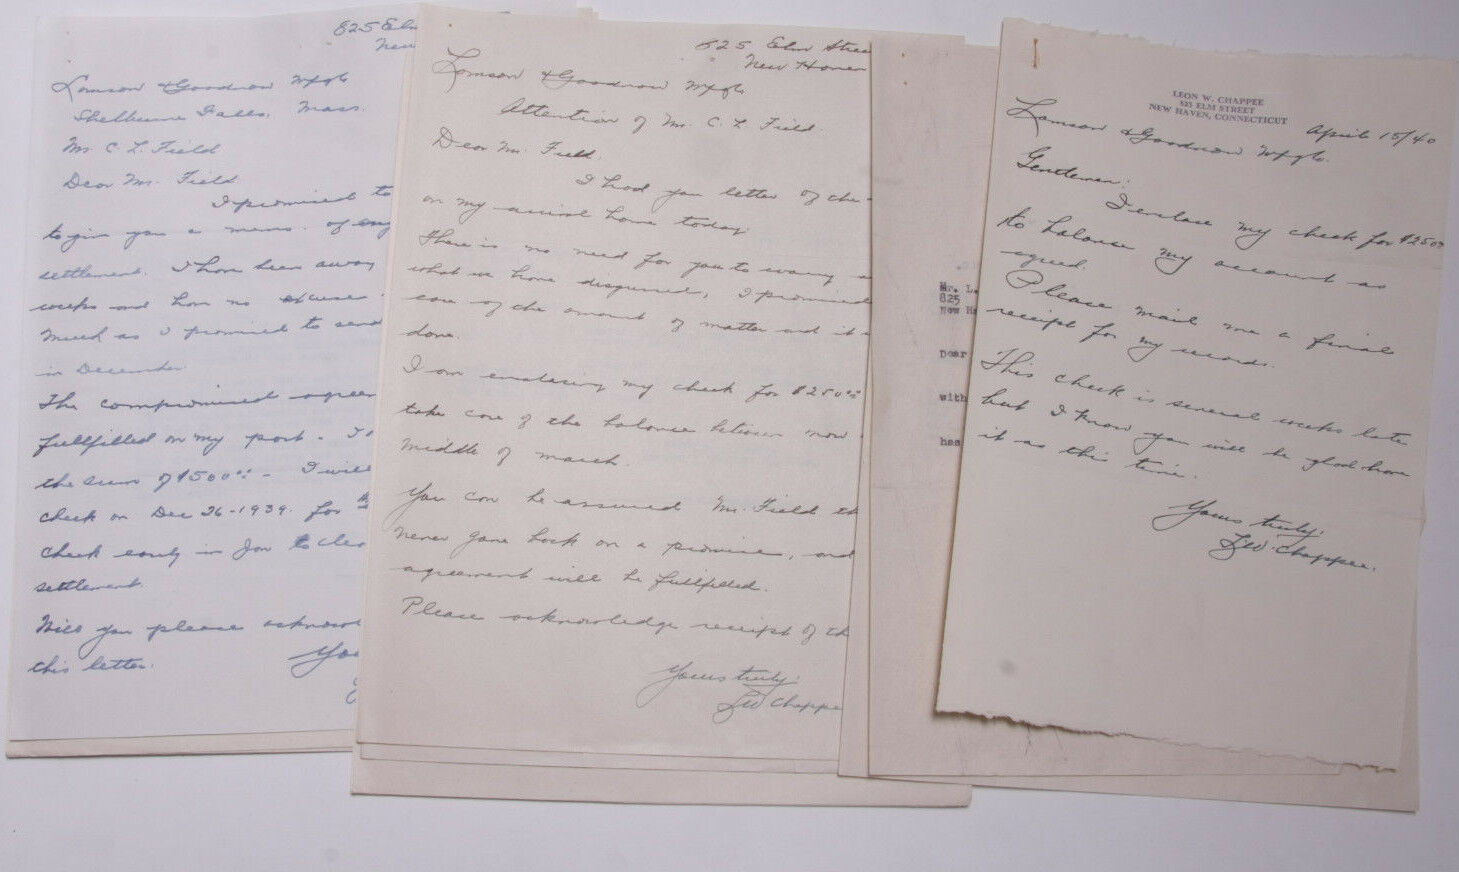 825 Elm
New
Lamson & Goodnow Mfg Co
Shelburne Falls, Mass.
Mr C L Field
Dear Mr. Field
I promised to
to give you a memo. of my
settlement. I have been away
weeks and have no excuse.
much as I promised to send
in December
The compromised agree
fullfilled on my part - I
the sum of $500.00 - I will
check on Dec 26-1939. for
check early in Jan to clea
settlement.
Will you please acknow
this letter.
You
825 Elm Stree
New Haven
Lamson & Goodnow Mfg Co
Attention of Mr. C. L. Field.
Dear Mr. Field.
I had you letter of the
on my arrival home today.
There is no need for you to worry
what we have disgussed, I promised
care of the amount of matter and it
done.
I am enclosing my check for $250.00
take care of the balance between now
middle of march.
You can be assured Mr. Field th
never gone back on a promise, and
agreement will be fullfilled.
Please acknowledge receipt of th
Yours truly.
LW Chappe
Mr. L.
825
New Ha
Dear
with
has
LEON W. CHAPPEE
825 ELM STREET
NEW HAVEN, CONNECTICUT
April 15/40
Lamson & Goodnow Mfg Co.
Gentlemen:
I enclose my check for $250.00
to balance my account as
agreed.
Please mail me a final
receipt for my records.
This check is several weeks late
but I know you will be glad have
it at this time.
Yours truly.
LW Chappee.